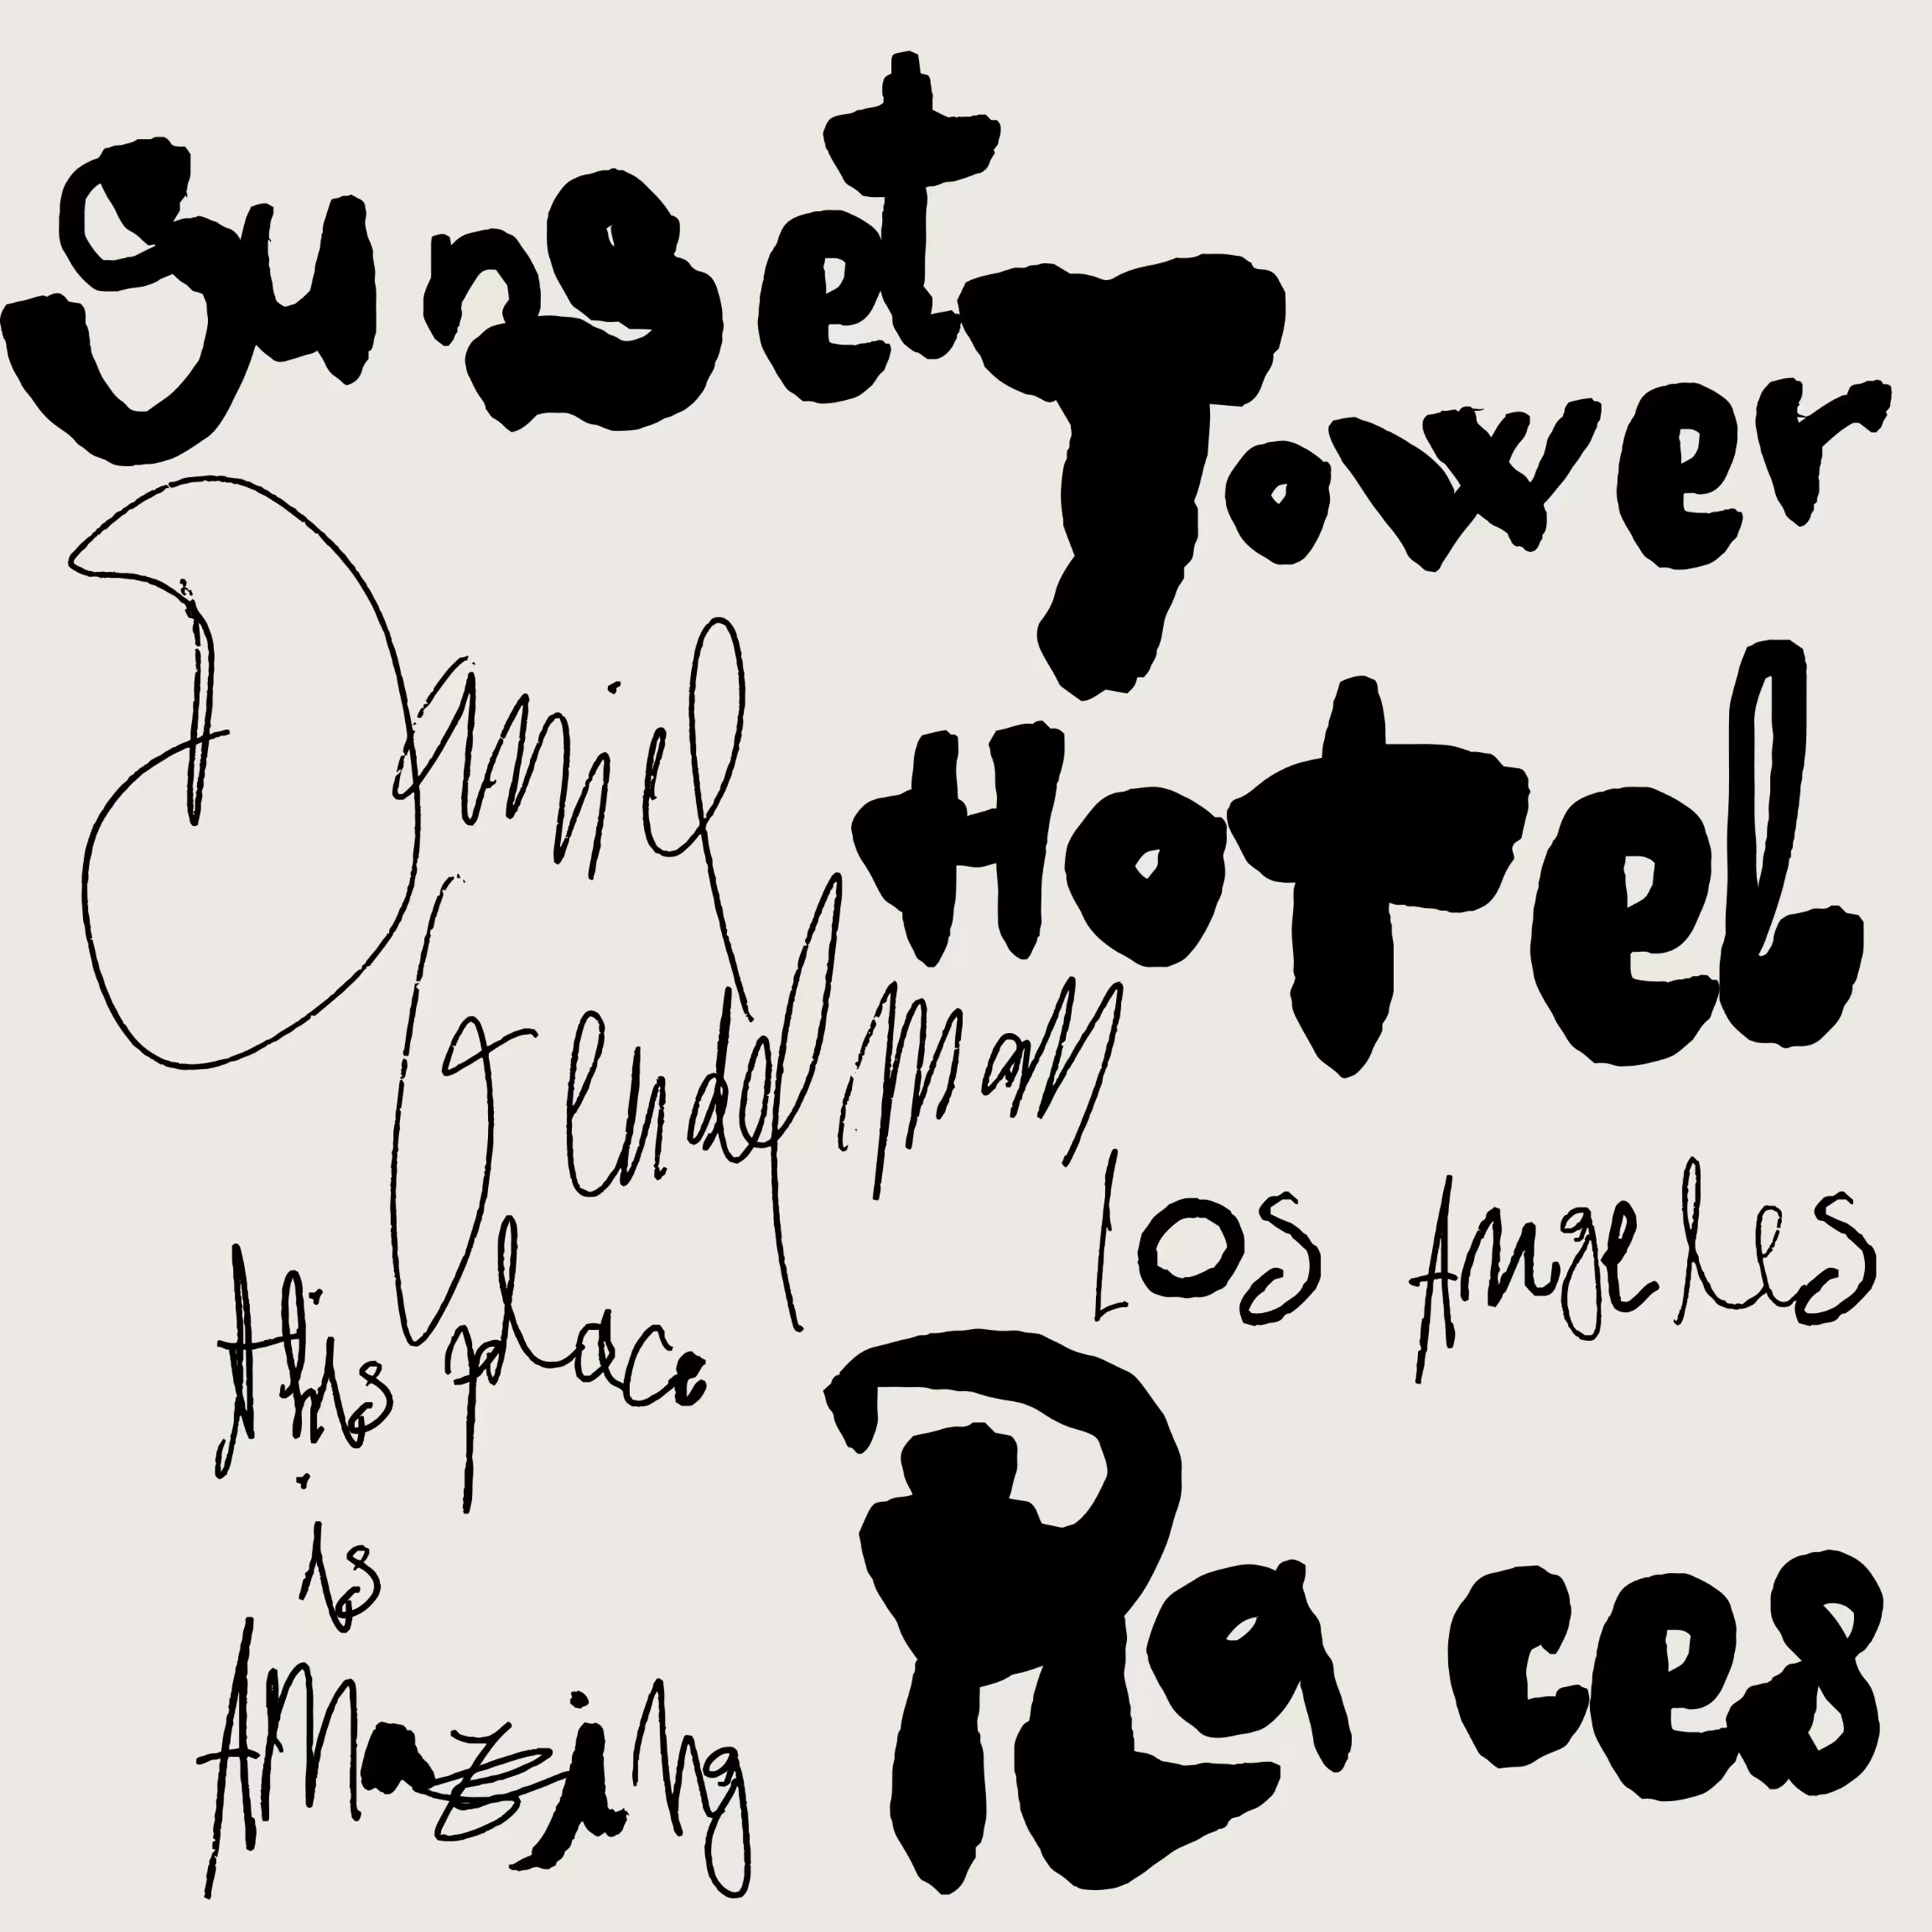 Sunset
Tower
Hotel
Daniel
Feuermann
Los Angeles
This Place
is
Amazing
Places